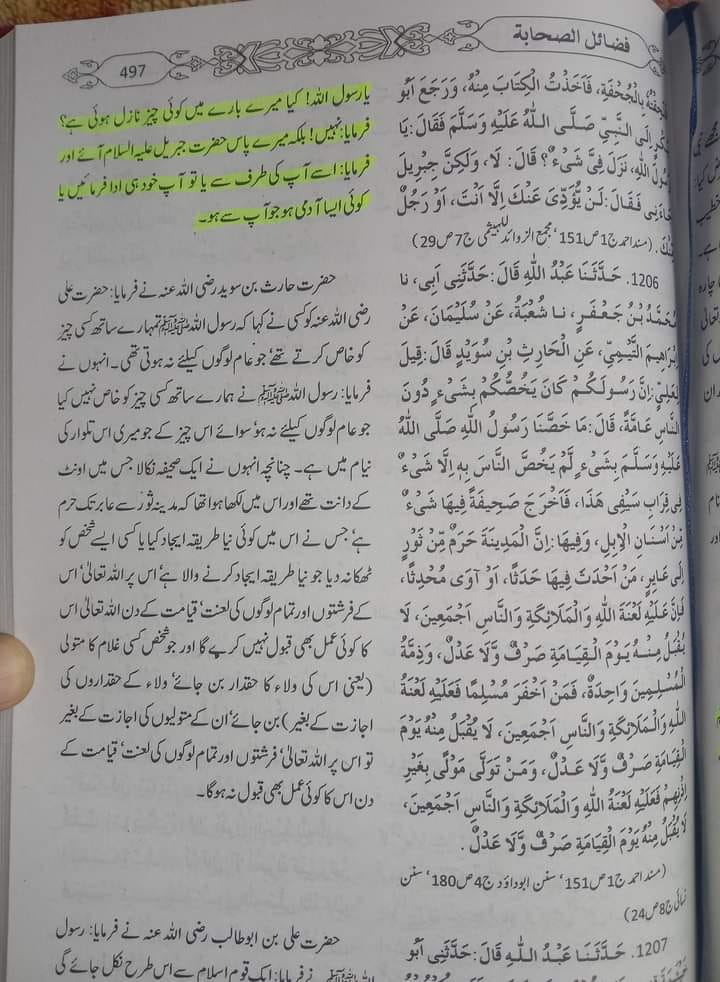 فضائل الصحابة
497
بِالْجُحْفَةِ، فَاَخَذْتُ الْكِتَابَ مِنْهُ، وَرَجَعَ اَبُو
اِلَى النَّبِيِّ صَلَّى اللّٰهُ عَلَيْهِ وَسَلَّمَ فَقَالَ: يَا
اللّٰهِ، نَزَلَ فِىَّ شَىْءٌ؟ قَالَ: لَا، وَلٰكِنَّ جِبْرِيلَ
فَقَالَ: لَنْ يُؤَدِّىَ عَنْكَ اِلَّا اَنْتَ، اَوْ رَجُلٌ
(مسند احمد ج1 ص151، مجمع الزوائد للہیثمی ج7 ص29)
1206. حَدَّثَنَا عَبْدُ اللّٰهِ قَالَ: حَدَّثَنِى اَبِى، نا
مُحَمَّدُ بْنُ جَعْفَرٍ، نا شُعْبَةُ، عَنْ سُلَيْمَانَ، عَنْ
اِبْرَاهِيمَ التَّيْمِيِّ، عَنِ الْحَارِثِ بْنِ سُوَيْدٍ قَالَ: قِيلَ
لِعَلِيٍّ: اِنَّ رَسُولَكُمْ كَانَ يَخُصُّكُمْ بِشَىْءٍ دُونَ
النَّاسِ عَامَّةً، قَالَ: مَا خَصَّنَا رَسُولُ اللّٰهِ صَلَّى اللّٰهُ
عَلَيْهِ وَسَلَّمَ بِشَىْءٍ لَّمْ يَخُصَّ النَّاسَ بِهِ اِلَّا شَىْءٌ
فِى قِرَابِ سَيْفِى هٰذَا، فَاَخْرَجَ صَحِيفَةً فِيهَا شَىْءٌ
مِّنْ اَسْنَانِ الْاِبِلِ، وَفِيهَا: اِنَّ الْمَدِينَةَ حَرَمٌ مِّنْ ثَوْرٍ
اِلَى عَايِرٍ، مَنْ اَحْدَثَ فِيهَا حَدَثًا، اَوْ آوَى مُحْدِثًا،
فَاِنَّ عَلَيْهِ لَعْنَةَ اللّٰهِ وَالْمَلَائِكَةِ وَالنَّاسِ اَجْمَعِينَ، لَا
يُقْبَلُ مِنْهُ يَوْمَ الْقِيَامَةِ صَرْفٌ وَّلَا عَدْلٌ، وَذِمَّةُ
الْمُسْلِمِينَ وَاحِدَةٌ، فَمَنْ اَخْفَرَ مُسْلِمًا فَعَلَيْهِ لَعْنَةُ
اللّٰهِ وَالْمَلَائِكَةِ وَالنَّاسِ اَجْمَعِينَ، لَا يُقْبَلُ مِنْهُ يَوْمَ
الْقِيَامَةِ صَرْفٌ وَّلَا عَدْلٌ، وَمَنْ تَوَلَّى مَوْلًى بِغَيْرِ
اِذْنِهِمْ فَعَلَيْهِ لَعْنَةُ اللّٰهِ وَالْمَلَائِكَةِ وَالنَّاسِ اَجْمَعِينَ،
لَا يُقْبَلُ مِنْهُ يَوْمَ الْقِيَامَةِ صَرْفٌ وَّلَا عَدْلٌ.
(مسند احمد ج1 ص151، سنن ابوداؤد ج4 ص180، سنن
نسائی ج8 ص24)
1207. حَدَّثَنَا عَبْدُ اللّٰهِ قَالَ: حَدَّثَنِى اَبُو
یا رسول اللہ! کیا میرے بارے میں کوئی چیز نازل ہوئی ہے؟
فرمایا: نہیں! بلکہ میرے پاس حضرت جبریل علیہ السلام آئے اور
فرمایا: اسے آپ کی طرف سے یا تو آپ خود ہی ادا فرمائیں یا
کوئی ایسا آدمی ہو جو آپ سے ہو۔
حضرت حارث بن سوید رضی اللہ عنہ نے فرمایا: حضرت علی
رضی اللہ عنہ کو کسی نے کہا کہ رسول اللہ ﷺ تمہارے ساتھ کسی چیز
کو خاص کرتے تھے، جو عام لوگوں کیلئے نہ ہوتی تھی۔ انہوں نے
فرمایا: رسول اللہ ﷺ نے ہمارے ساتھ کسی چیز کو خاص نہیں کیا
جو عام لوگوں کیلئے نہ ہو، سوائے اس چیز کے جو میری اس تلوار کی
نیام میں ہے۔ چنانچہ انہوں نے ایک صحیفہ نکالا جس میں اونٹ
کے دانت تھے اور اس میں لکھا ہوا تھا کہ مدینہ ثور سے عابر تک حرم
ہے، جس نے اس میں کوئی نیا طریقہ ایجاد کیا یا کسی ایسے شخص کو
ٹھکانہ دیا جو نیا طریقہ ایجاد کرنے والا ہے، اس پر اللہ تعالیٰ، اس
کے فرشتوں اور تمام لوگوں کی لعنت، قیامت کے دن اللہ تعالیٰ اس
کا کوئی عمل بھی قبول نہیں کرے گا اور جو شخص کسی غلام کا متولی
(یعنی اس کی ولاء کا حقدار بن جائے، ولاء کے حقداروں کی
اجازت کے بغیر) بن جائے، ان کے متولیوں کی اجازت کے بغیر
تو اس پر اللہ تعالیٰ، فرشتوں اور تمام لوگوں کی لعنت، قیامت کے
دن اس کا کوئی عمل بھی قبول نہ ہوگا۔
حضرت علی بن ابوطالب رضی اللہ عنہ نے فرمایا: رسول
نے فرمایا: ایک قوم اسلام سے اس طرح نکل جائے گی